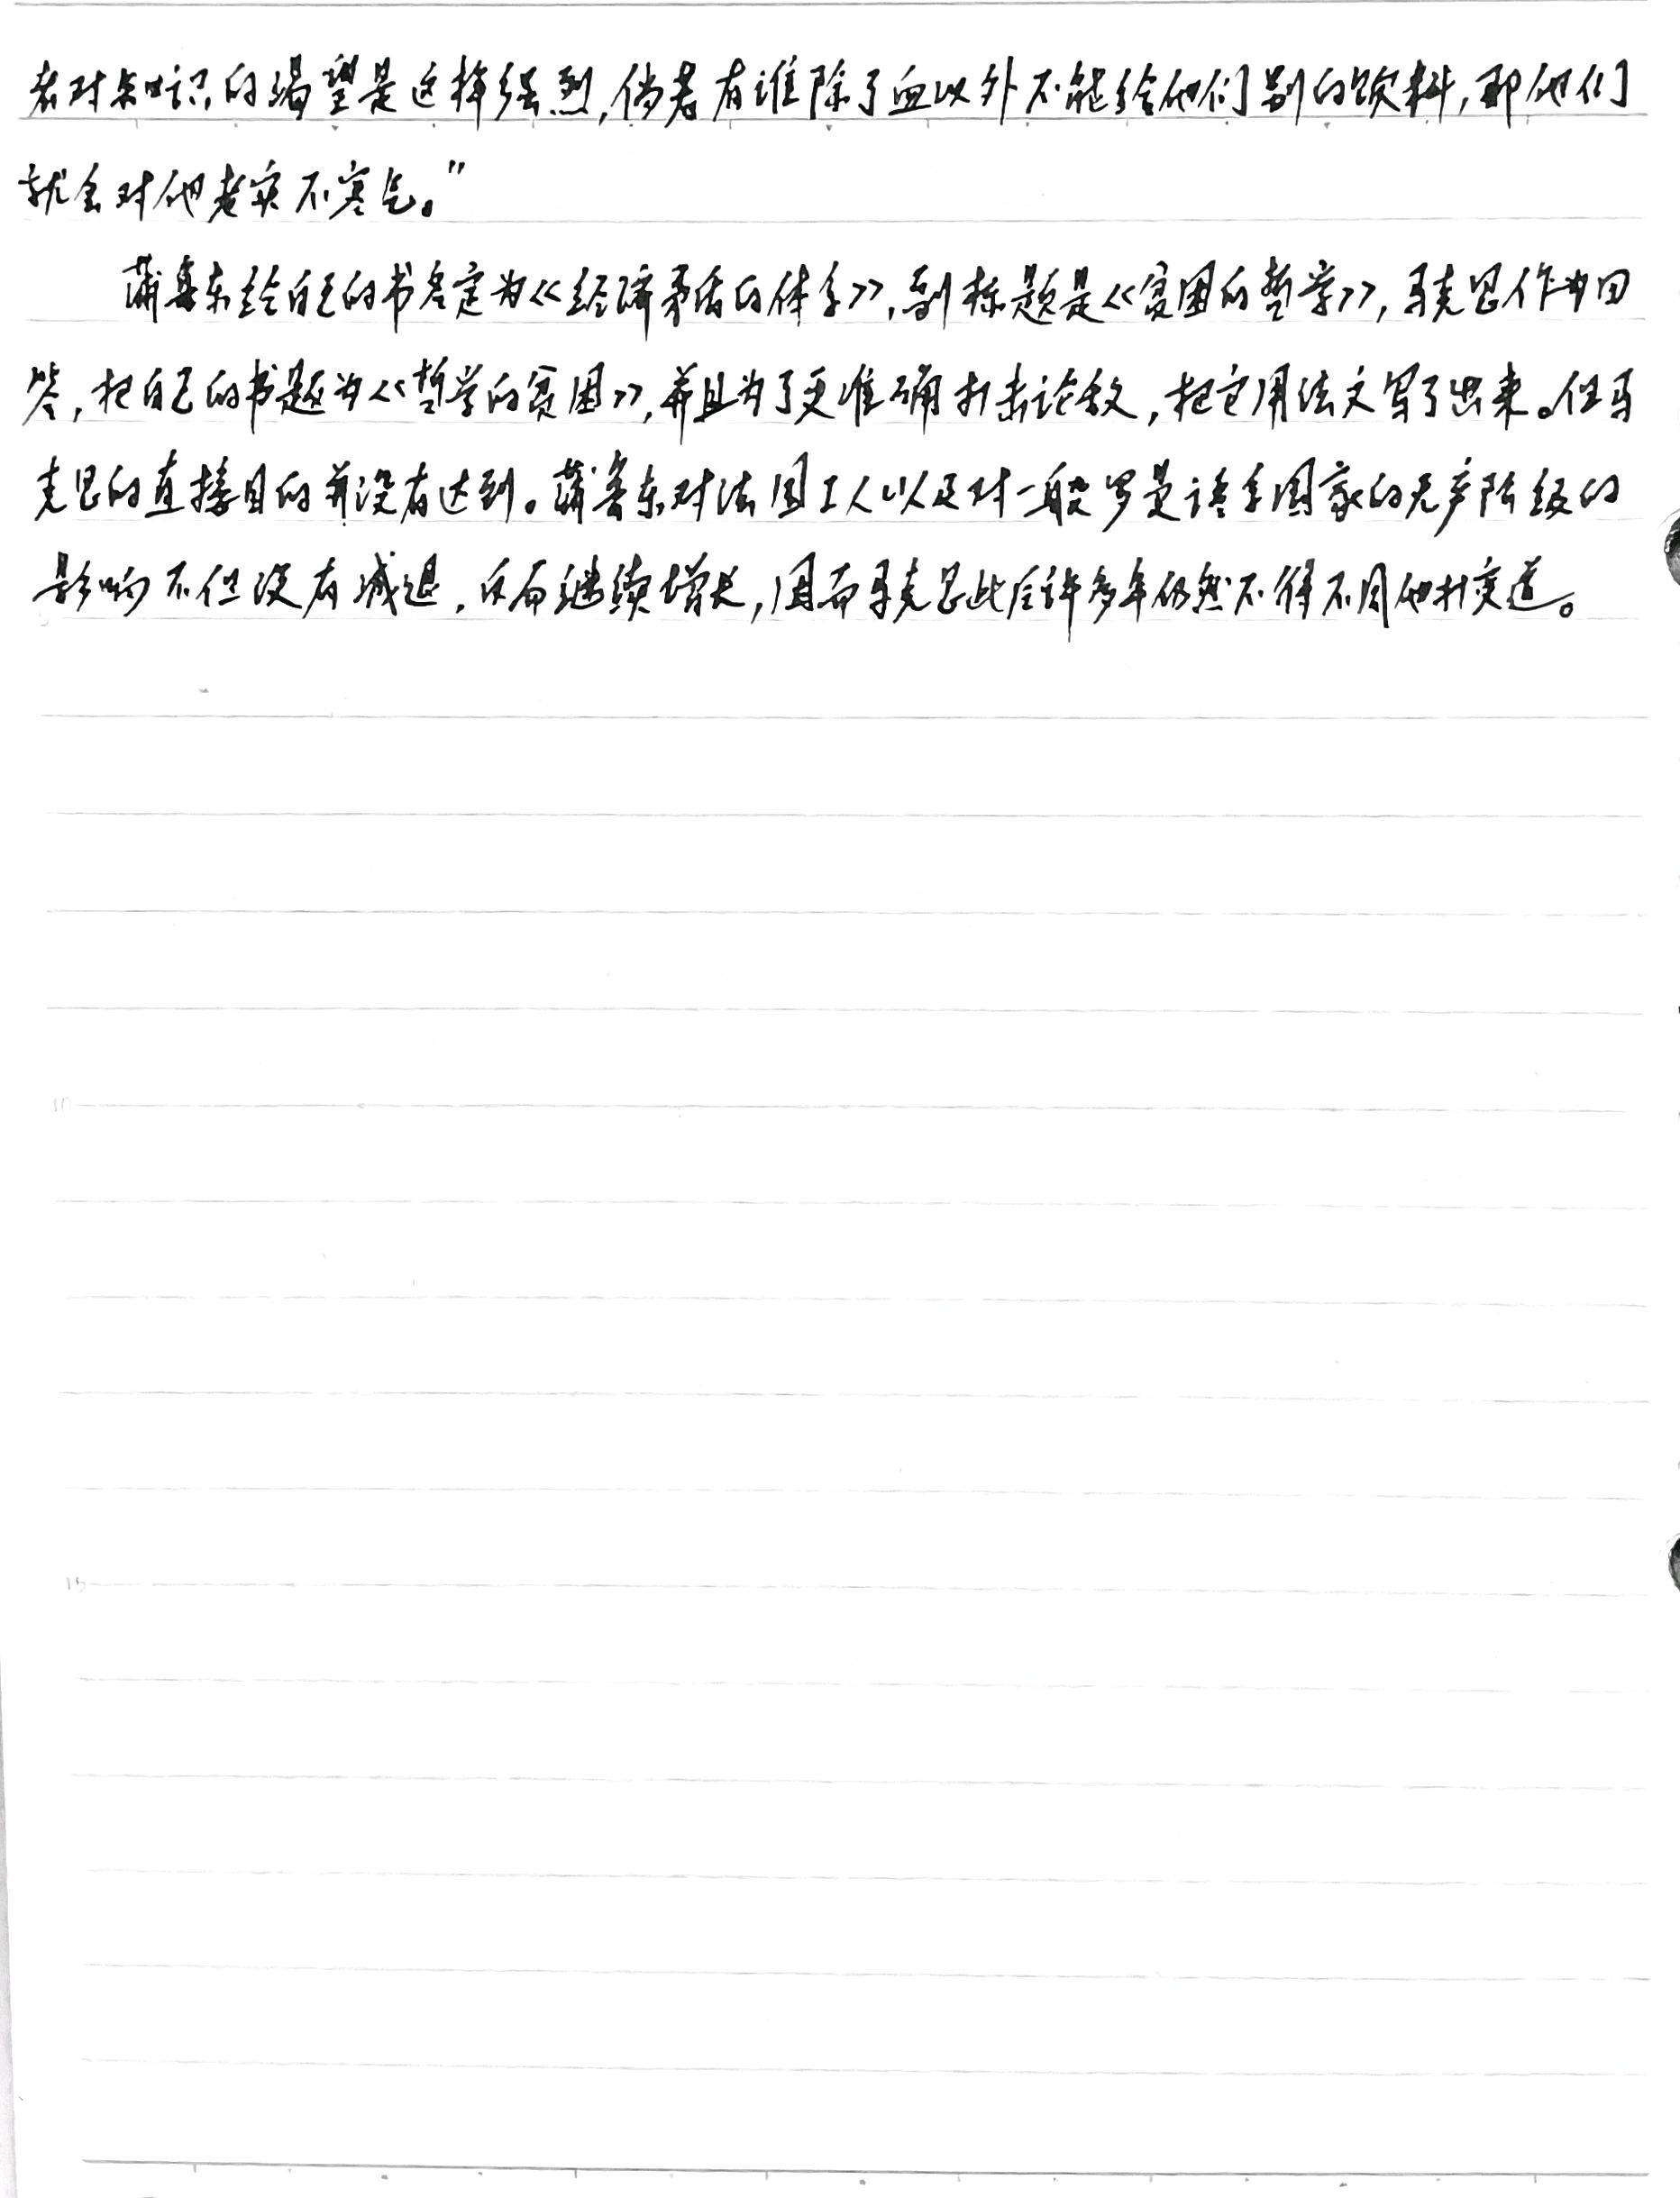 者对知识的渴望是这样强烈，倘若有谁除了血以外不能给他们别的饮料，那他们
就会对他老实不客气。”
蒲鲁东给自己的书名定为《经济矛盾的体系》，副标题是《贫困的哲学》，马克思作为回
答，把自己的书题为《哲学的贫困》，并且为了更准确打击论敌，把它用法文写了出来。但马
克思的直接目的并没有达到。蒲鲁东对法国工人以及对一般罗曼语系国家的无产阶级的
影响不但没有减退，反而继续增长，因而马克思此后许多年仍然不得不同他打交道。
10
15